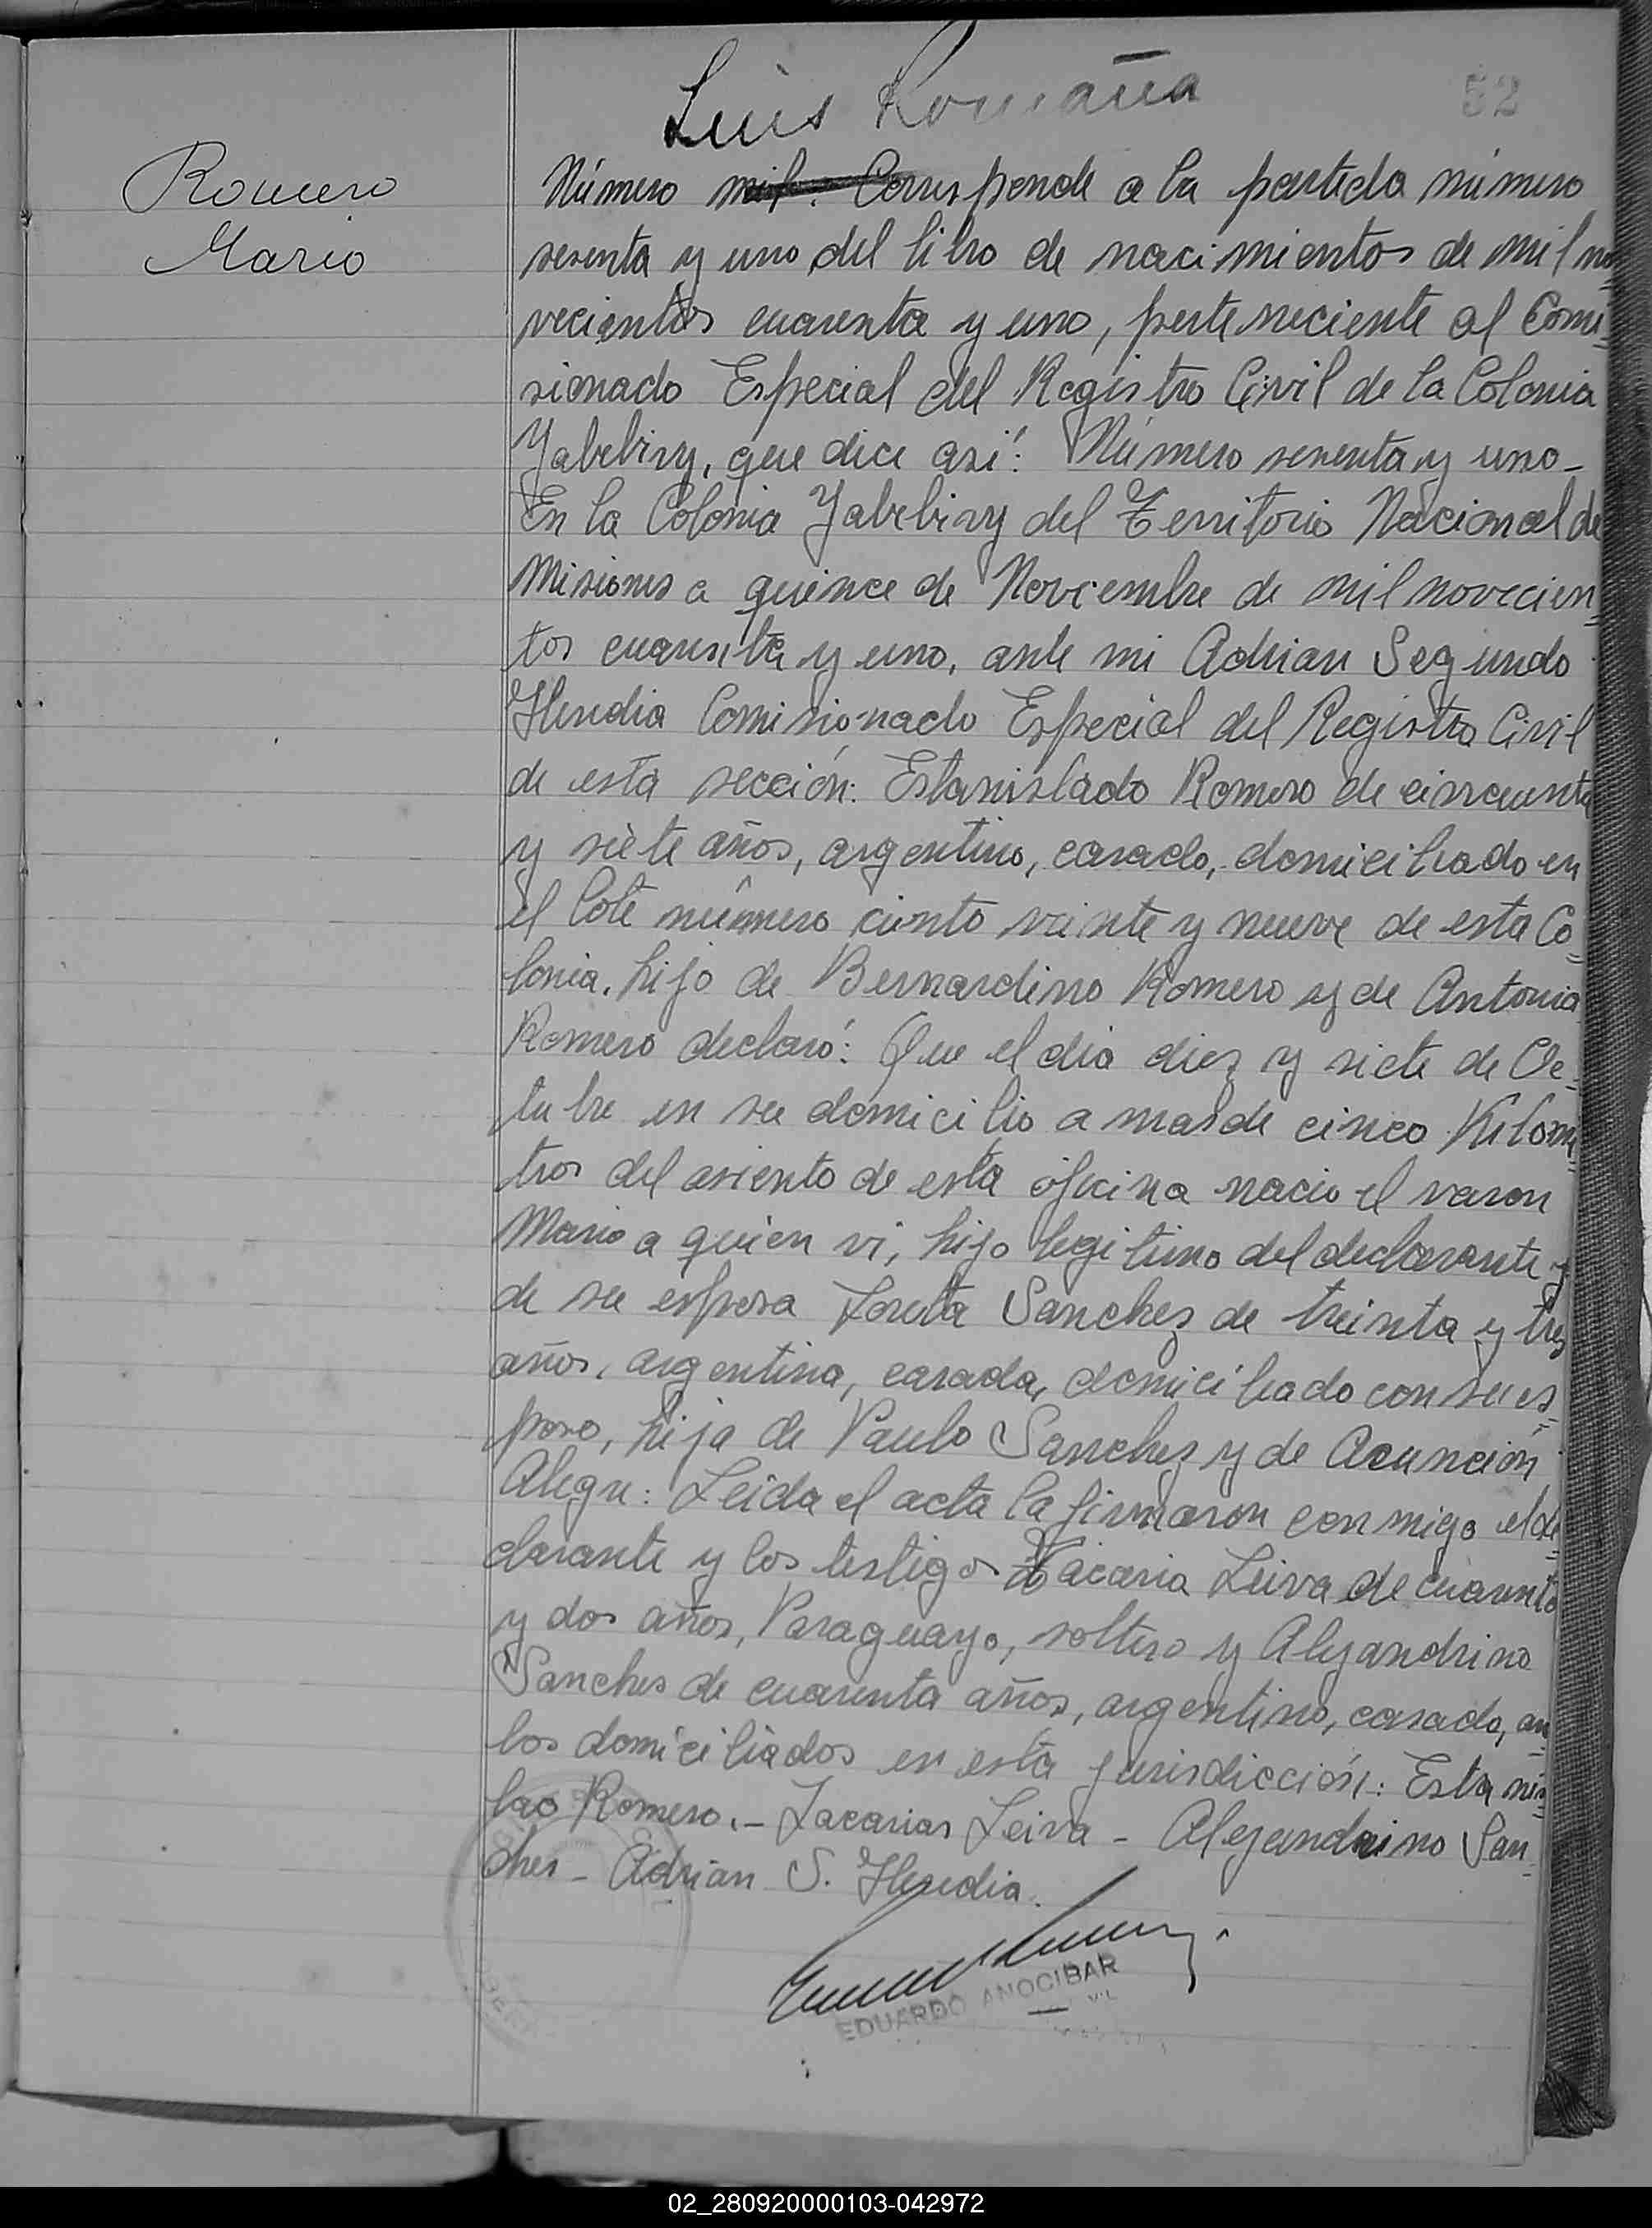 Luis Romaña
52
Romero
Mario
Número mil. Corresponde a la partida número
sesenta y uno del libro de nacimientos de mil no
vecientos cuarenta y uno, perteneciente al Comi
sionado Especial del Registro Civil de la Colonia
Yabebiry, que dice así: Número sesenta y uno-
En la Colonia Yabebiry del Territorio Nacional de
Misiones a quince de Noviembre de mil novecien
tos cuarenta y uno, ante mi Adrian Segundo
Heredia Comisionado Especial del Registro Civil
de esta sección: Estanislado Romero de cincuenta
y siete años, argentino, casado, domiciliado en
el lote número ciento veinte y nueve de esta Co
lonia, hijo de Bernardino Romero y de Antonia
Romero declaró: Que el dia diez y siete de Oc
tubre en su domicilio a mas de cinco Kilome
tros del asiento de esta oficina nacio el varon
Mario a quien vi, hijo legitimo del declarante y
de su esposa Loreta Sanchez de treinta y tres
años, argentina, casada, domiciliado con su es
poso, hija de Paulo Sanchez y de Acunción
Alegre: Leida el acta la firmaron conmigo el de
clarante y los testigos Zacaria Leiva de cuarenta
y dos años, Paraguayo, soltero y Alejandrino
Sanches de cuarenta años, argentino, casado, am
bos domiciliados en esta jurisdicción: Estanis
lao Romero.- Zacarias Leiva - Alejandrino San
ches - Adrian S. Heredia.
EDUARDO ANOCIBAR
02_280920000103-042972